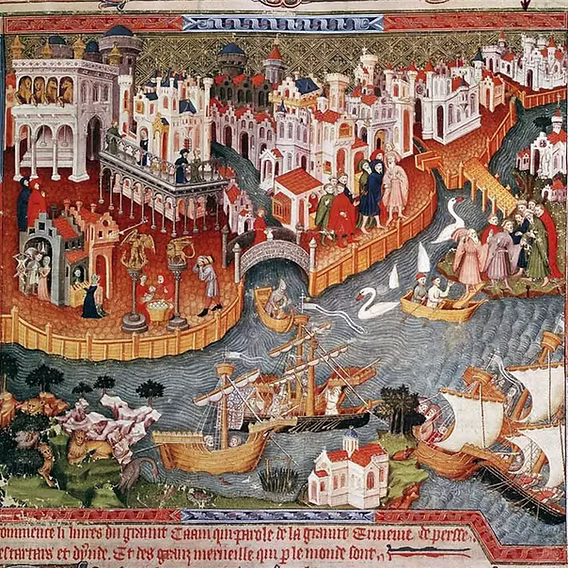 ommence li liures du graunt Caam qui parole de la graunt Ermenie de perse.
estartars et dynde. Et des granz merueille qui p le monde sont